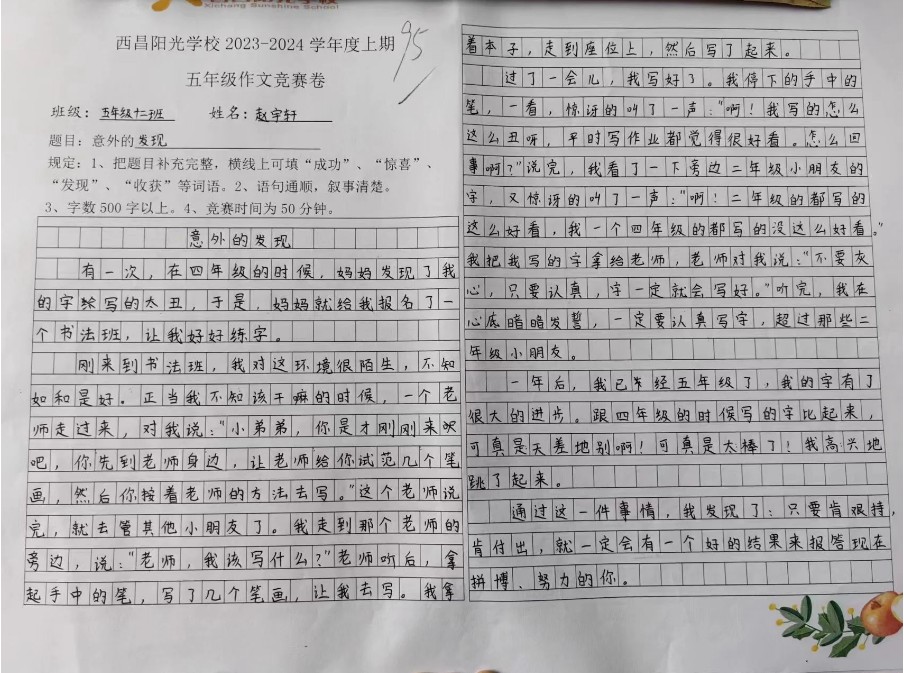 Xichang Sunshine School
西昌阳光学校2023-2024学年度上期
95
五年级作文竞赛卷
班级：五年级十二班 姓名：赵宇轩
题目：意外的发现
规定：1、把题目补充完整，横线上可填“成功”、“惊喜”、
“发现”、“收获”等词语。2、语句通顺，叙事清楚。
3、字数500字以上。4、竞赛时间为50分钟。
意外的发现
有一次，在四年级的时候，妈妈发现了我
的字绘写的太丑，于是，妈妈就给我报名了一
个书法班，让我好好练字。
刚来到书法班，我对这环境很陌生，不知
如和是好。正当我不知该干嘛的时候，一个老
师走过来，对我说：“小弟弟，你是才刚刚来
吧，你先到老师身边，让老师给你试范几个笔
画，然后你按着老师的方法去写。”这个老师说
完，就去管其他小朋友了。我走到那个老师的
旁边，说：“老师，我该写什么？”老师听后，拿
起手中的笔，写了几个笔画，让我去写。我拿
着本子，走到座位上，然后写了起来。
过了一会儿，我写好了。我停下的手中的
笔，一看，惊讶的叫了一声：“啊！我写的怎么
这么丑呀，平时写作业都觉得很好看。怎么回
事啊？”说完，我看了一下旁边二年级小朋友的
字，又惊讶的叫了一声：“啊！二年级的都写的
这么好看，我一个四年级的都写的没这么好看。”
我把我写的字拿给老师，老师对我说：“不要灰
心，只要认真，字一定就会写好。”听完，我在
心底暗暗发誓，一定要认真写字，超过那些二
年级小朋友。
一年后，我已经五年级了，我的字有了
很大的进步。跟四年级的时候写的字比起来，
可真是天差地别啊！可真是太棒了！我高兴地
跳了起来。
通过这一件事情，我发现了：只要肯艰持，
肯付出，就一定会有一个好的结果来报答现在
拼博、努力的你。